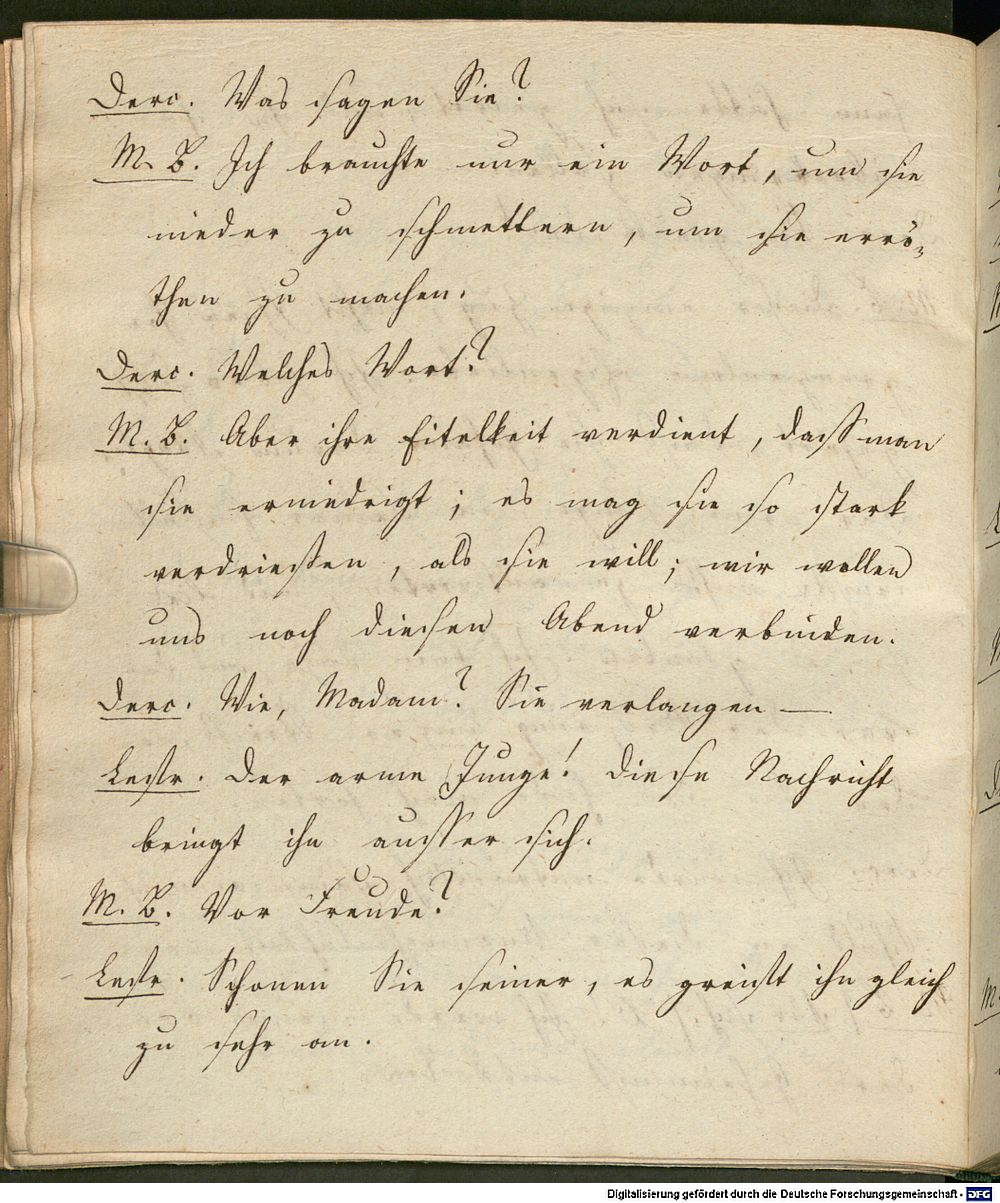 Derc. Was sagen Sie?
M. B. Ich brauchte nur ein Wort, um sie
nieder zu schmettern, um sie errö-
then zu machen.
Derc. Welches Wort?
M. B. Aber ihre Eitelkeit verdient, dass man
sie erniedrigt; es mag sie so stark
verdriessen, als sie will; wir wollen
uns noch diesen Abend verbinden.
Derc. Wie, Madam? Sie verlangen —
Lestr. Der arme Junge! diese Nachricht
bringt ihn ausser sich.
M. B. Vor Freude?
Lestr. Schonen Sie seiner, es greift ihn gleich
zu sehr an.
Digitalisierung gefördert durch die Deutsche Forschungsgemeinschaft - DFG